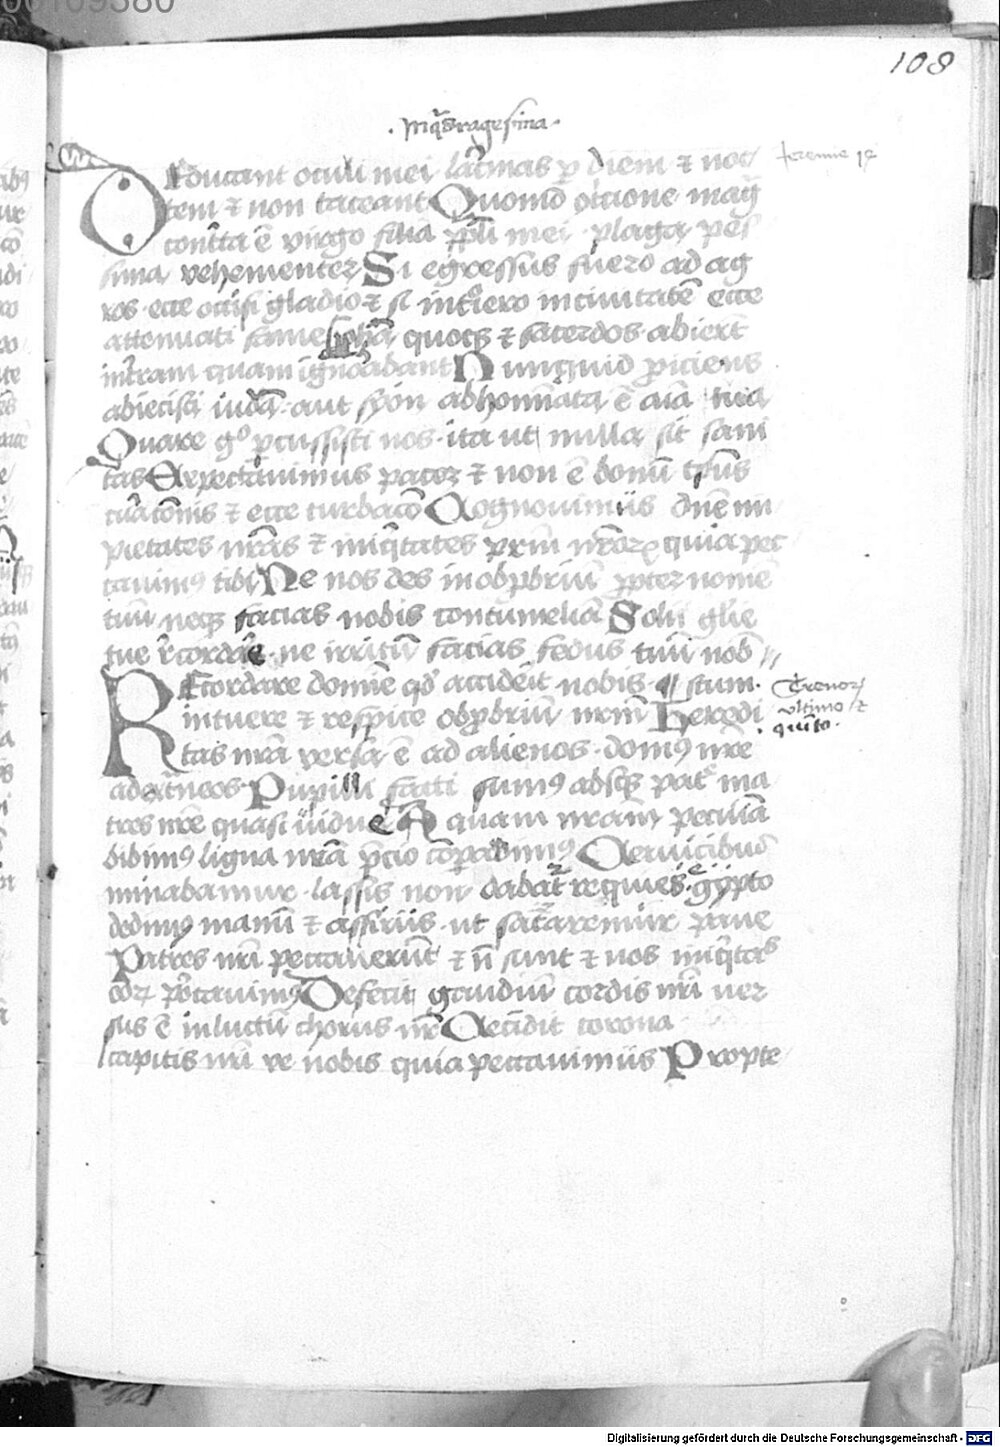 00109380
108
·inq̃dragesima·
Educant oculi mei lac̃mas ꝑ diem ⁊ noc
Jeremie 14
tem ⁊ non taceant Quoniõ ot̃tione mag̃
contr̃ta ẽ virgo filia pp̃li mei · plaga pes
sima vehementer Si egressus fuero ad ag
ros · ecce occisi gladio ⁊ si int̃iero in civitatẽ ecce
attenuati fame quoqꝫ ⁊ sacerdos · abiert̃
in t̃ram quam ignorabant Nunquid piciens
abiecisti iudã · aut syon abhominata ẽ aĩa tua
Quare gͦ pcussisti nos · ita ut nulla sit sani
tas Expectavimus pacez ⁊ non ẽ bonũ tp̃us
curat̃onis ⁊ ecce turbatõ Cognovimus dñe im
pietates nr̃as ⁊ iniq̃tates pr̃m nr̃orꝝ quia pec
cavimꝰ tibi Ne nos des in obpbriũ ppter nomẽ
tuũ neqꝫ facias nobis contumeliã Solii glie
tue r̃cordar̃e · ne irritũ facias fedus tuũ nob̃
Recordare domĩe qd̾ accideit nobis · ¶ stum·
Trenorꝫ
ultimo ⁊
quito·
intuere ⁊ respice obpbriũ nrm̃ Heredi
tas nrã versa ẽ ad alienos · domꝰ nrẽ
ad ext̃neos Pupilli facti sumꝰ absqꝫ patͤ ma
tres nrẽ quasi vidue Aquam nram̃ pecuniã
bibimꝰ ligna nrã p̃cio cõpaᵛimꝰ Cervicibus
minabamur · lassis non dabat̃ requies · egypto
dedimꝰ manũ ⁊ assiriis · ut sat̃aremur pane
Patres nrĩ peccaverũt ⁊ ñ sunt ⁊ nos iniq̃tatͤ
eorꝝ portavimꝰ Defecit gaudiũ cordis nrĩ ver
sus ẽ in luctũ chorus nr̃ Cecidit corona
capitis nrĩ ve nobis quia peccavimus Propte
Digitalisierung gefördert durch die Deutsche Forschungsgemeinschaft - DFG